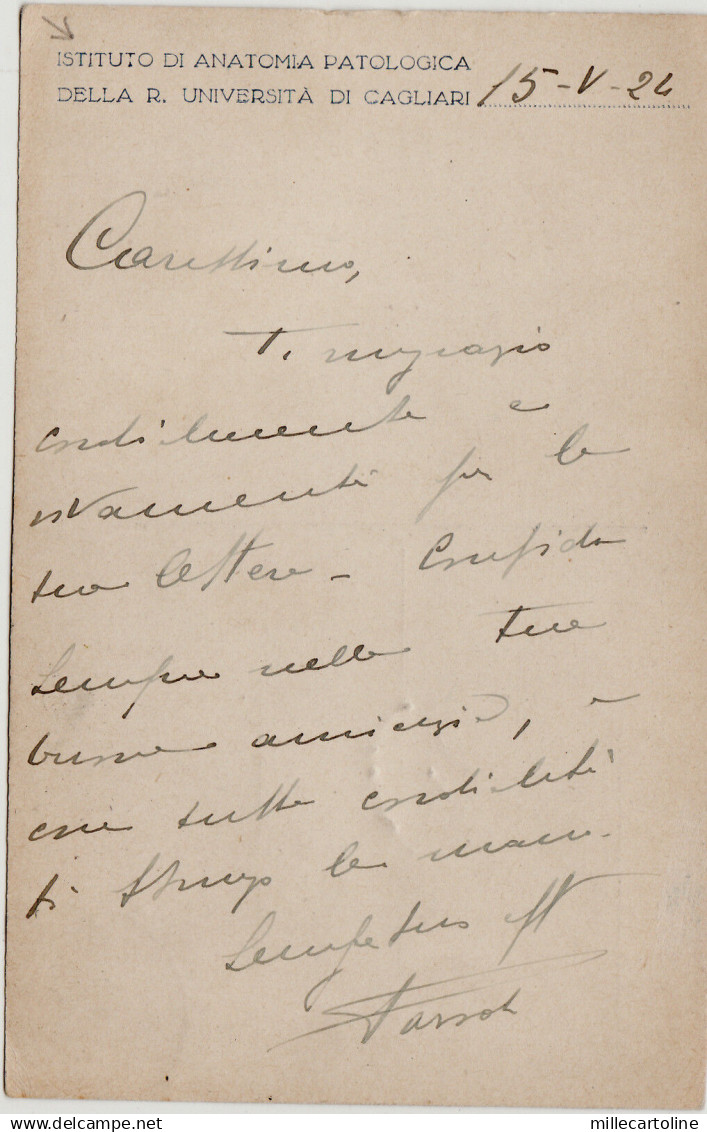 ISTITUTO DI ANATOMIA PATOLOGICA
DELLA R. UNIVERSITÀ DI CAGLIARI 15-V-24
Carissimo,
Ti ringrazio
cordialmente e
vivamente per la
tua lettera - Confido
sempre nella tua
buona amicizia, e
con tutta cordialità
ti stringo la mano.
Sempre tuo aff
millecartoline